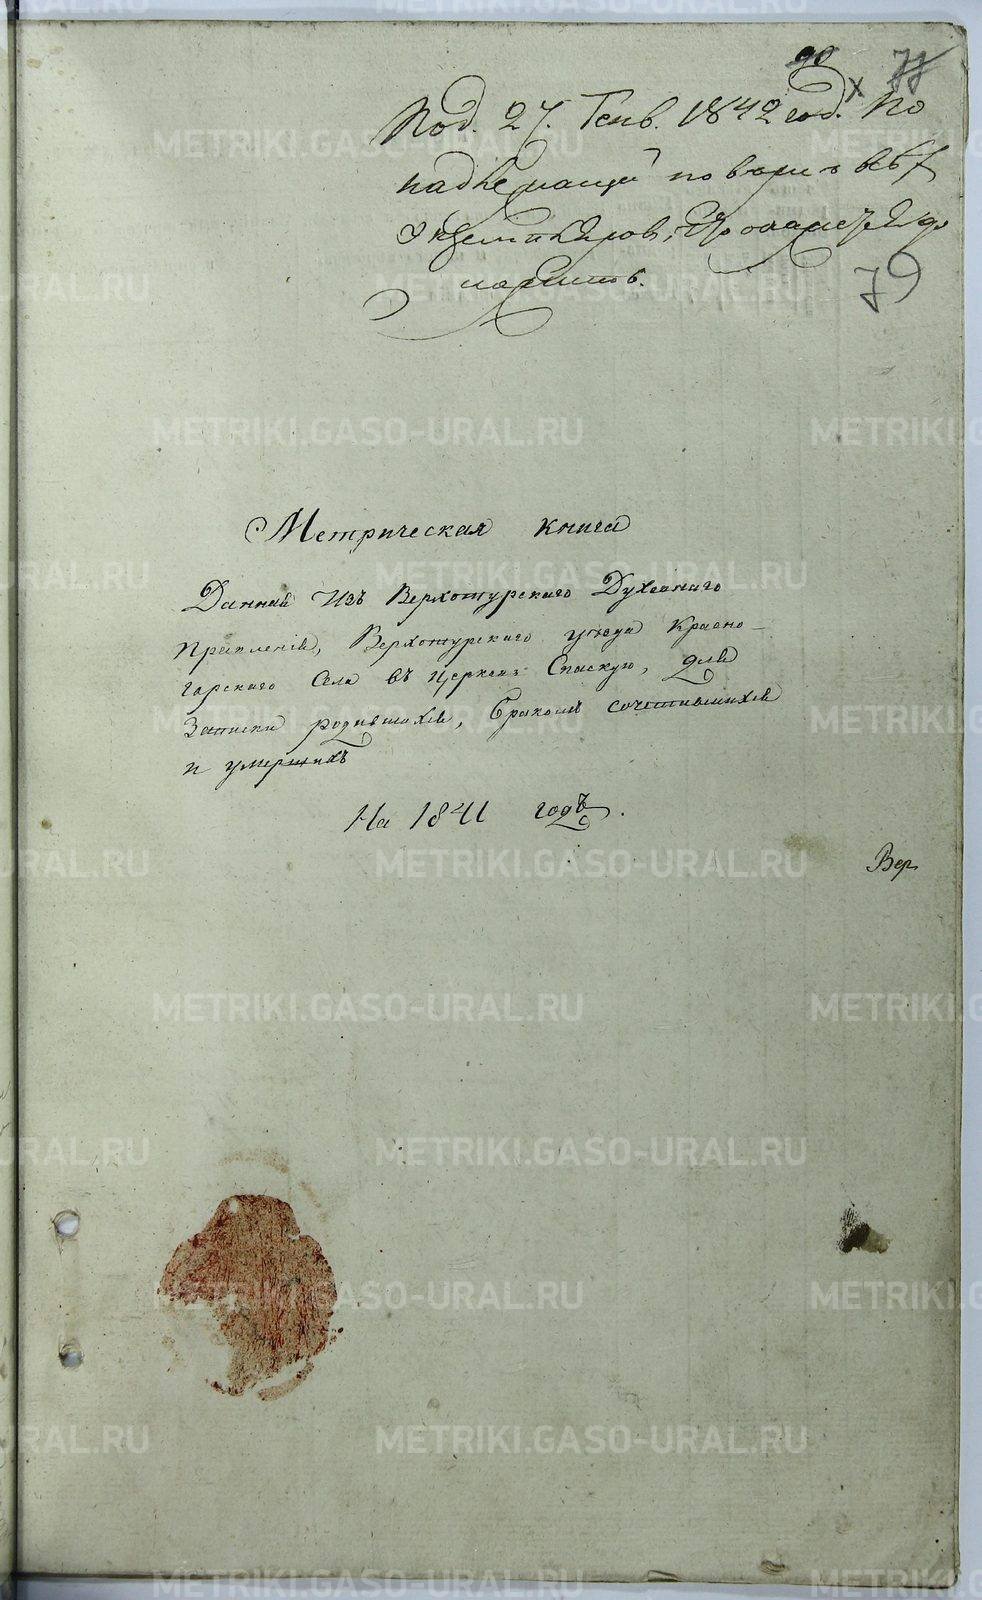 90 77
Под. 27. Генв. 1842 год. По
надлежащей повѣрке всѣх
экземпляров,
79
Метрическая книга
Данная Изъ Верхотурскаго Духовнаго
Правленія, Верхотурскаго уѣзда Красно-
горскаго Села въ Церковь Спаскую, для
Записки родившихся, бракомъ сочетавшихся
и умершихъ
На 1841 годъ.
Вер
METRIKI.GASO-URAL.RU